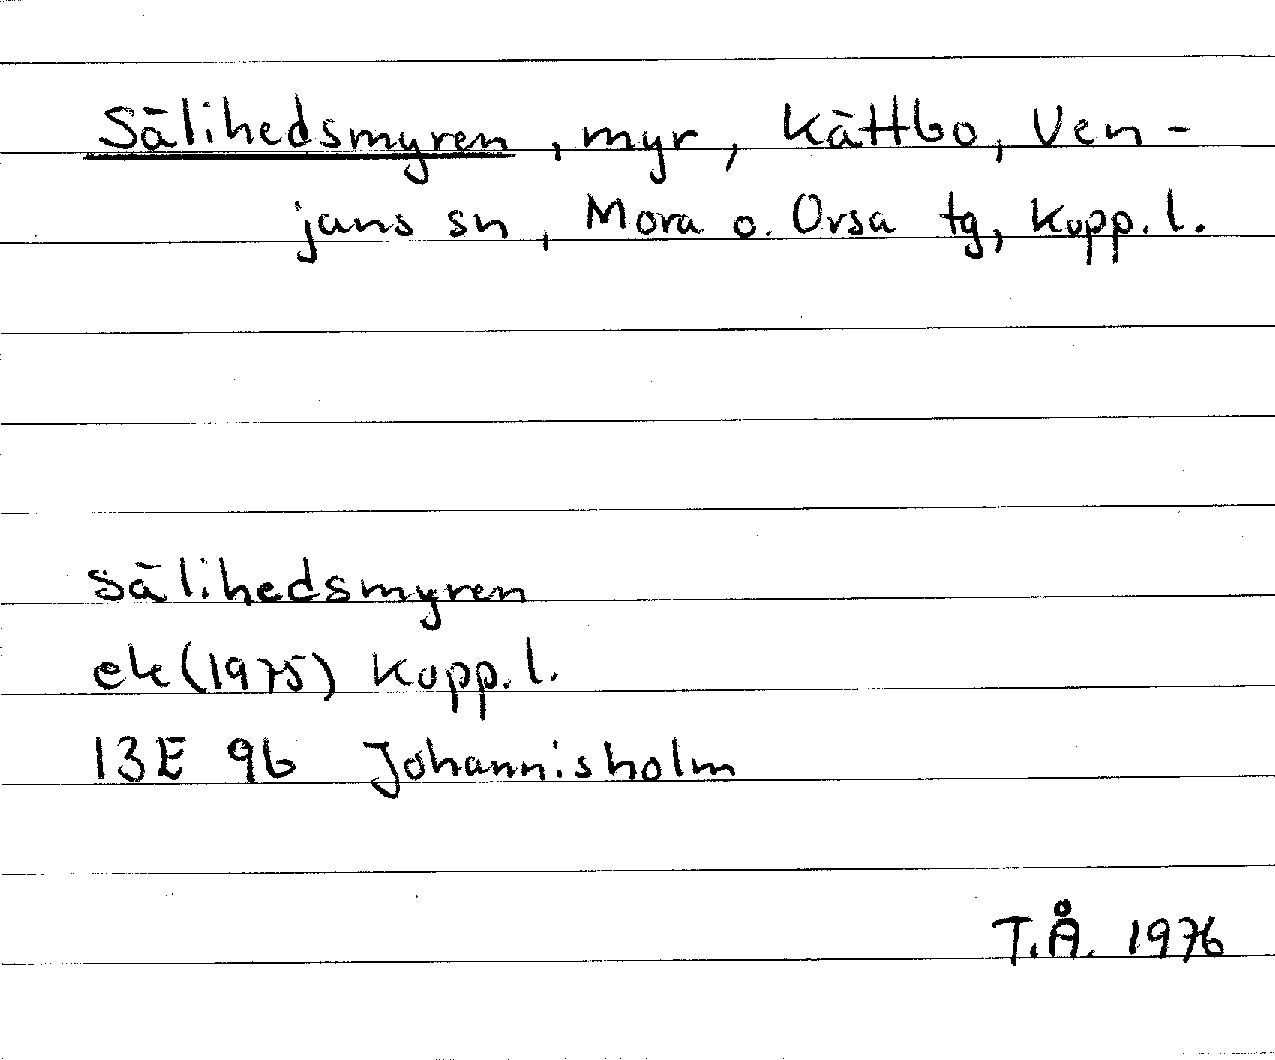 Sälihedsmyren, myr, Kättbo, Ven-
jans sn, Mora o. Orsa tg, Kopp. l.
Sälihedsmyren
ek (1975) Kopp. l.
13E 9b Johannisholm
T.Å. 1976